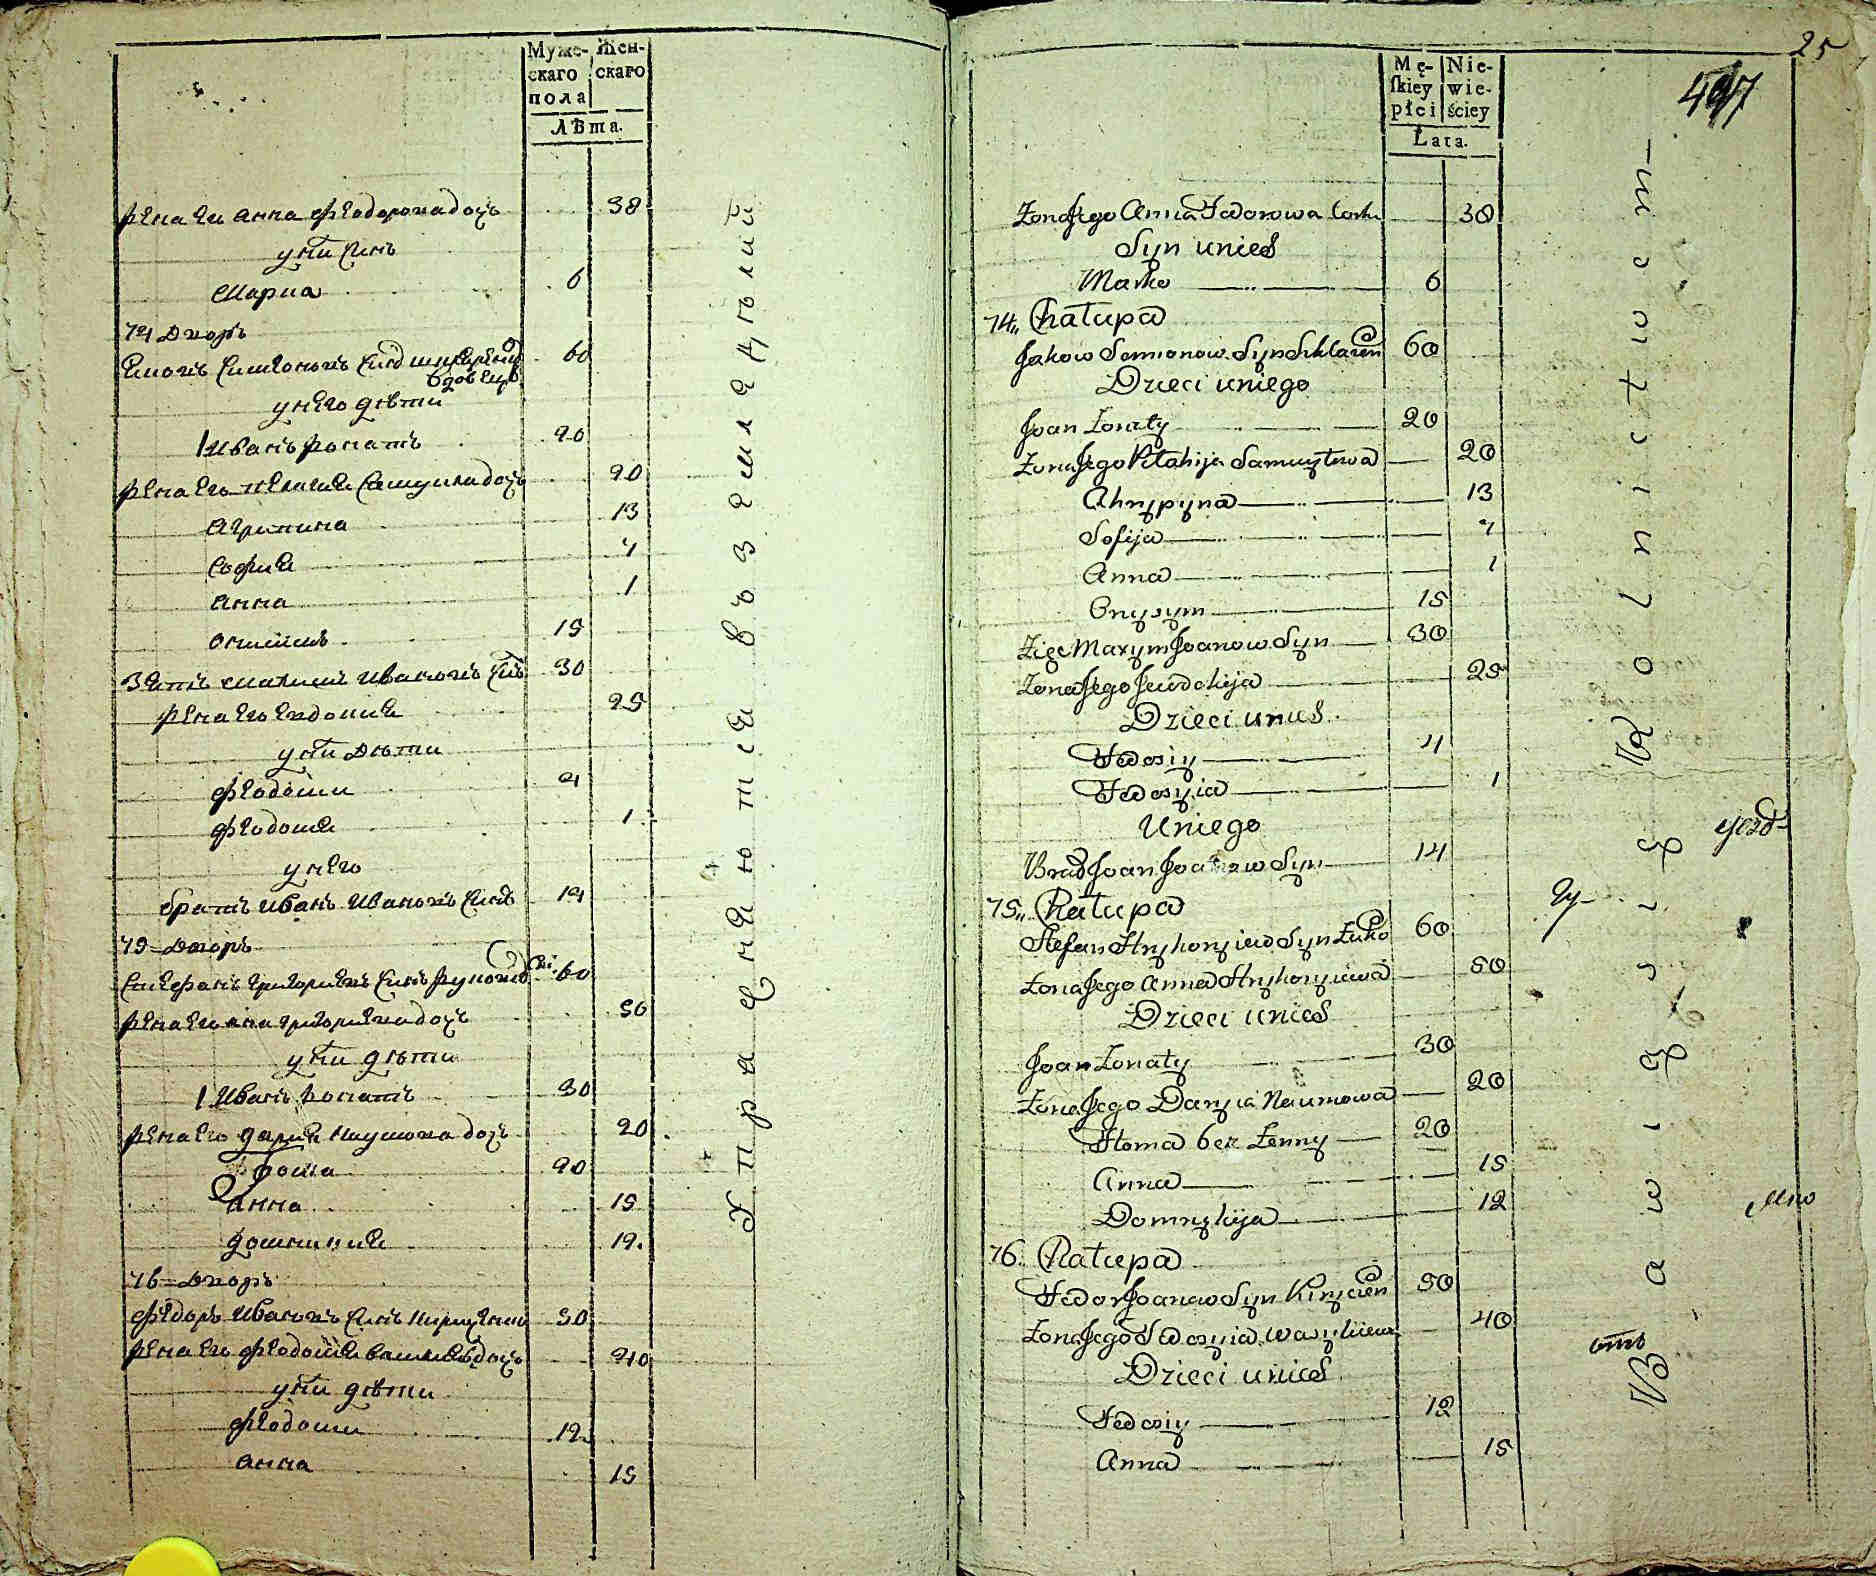 Муже- Жен-
скаго скаго
пола
Лѣта.
жена его анна феодорова дочь 38
у них синъ
Марко 6
74 Дворъ
Яковъ Симеоновъ синъ 60
у него дѣти
1 Иванъ жонатъ 20
жена его пелагия Самуила дочь 20
агрипина 13
софия 7
анна 1
онисим 15
зять максим Ивановъ синъ 30
жена его евдокия 25
у них дѣти
феодосий 4
феодосия 1
у него
братъ иванъ Ивановъ синъ 14
75 = Дворъ
Стефанъ григориевъ синъ 60
жена его анна григориева дочь 50
у них дѣти
1 Иванъ жонатъ 30
жена его дария наумова дочь 20
фома 20
анна 15
домникия 12
76 = Дворъ
феодоръ Ивановъ синъ 50
жена его феодосия васильева дочь 40
у них дѣти
феодосий 12
анна 15
Упраж няются въ земледѣлии
25
497
Mę- Nie-
ſkiey wie-
płci ściey
Lata.
Żona Jego Anna Fedorowa Corka 38
Syn unich
Marko 6
74,, Chałupa
Jakow Semionow Syn Szklaren 60
Dzieci uniego
Joan Żonaty 20
Żona Jego Pełahija Samuyłowa 20
Ahrypyna 13
Sofija 7
Anna 1
Onysym 15
Zięć Maxym Joanow Syn 30
Żona Jego Jewdokija 25
Dzieci unich
Fedosiy 4
Fedosyia 1
Uniego
Brad Joan Joanow Syn 14
75,, Chałupa
Stefan Hryhoryiew Syn Żuko 60
Żona Jego Anna Hryhoryiewa 50
Dzieci unich
Joan Żonaty 30
Żona Jego Darya Naumowa 20
Homa bez Żenny 20
Anna 15
Domnykija 12
76. Chałupa
Fedor Joanow Syn Kirycien 50
Żona Jego Fedosyia Wasyliewa 40
Dzieci unich
Fedosiy 12
Anna 15
Bawią się Rolnictwem
уезд